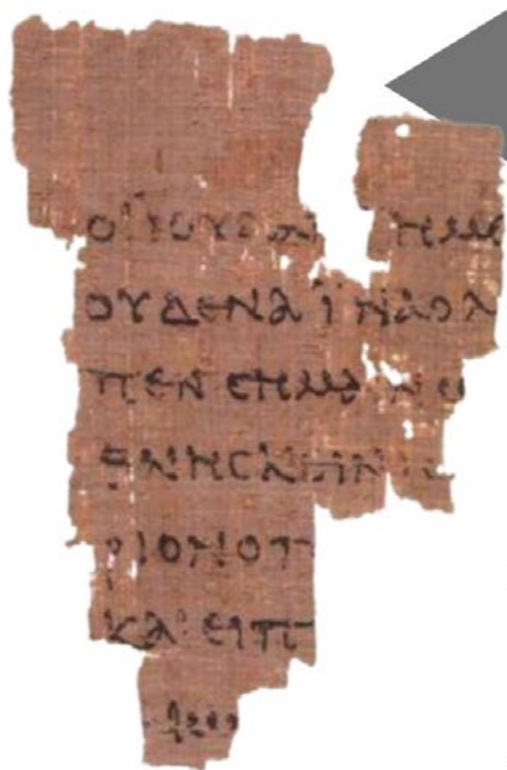 ΟΙ ΪΟΥΔΑΙ ΗΜΕ
ΟΥΔΕΝΑ ΪΝΑ Ο Λ
ΠΕΝ CΗΜΑΙΝΩ
ΘΝΗCΚΕΙΝ ΙC
ΡΙΟΝ Ο Π
ΚΑΙ ΕΙΠ